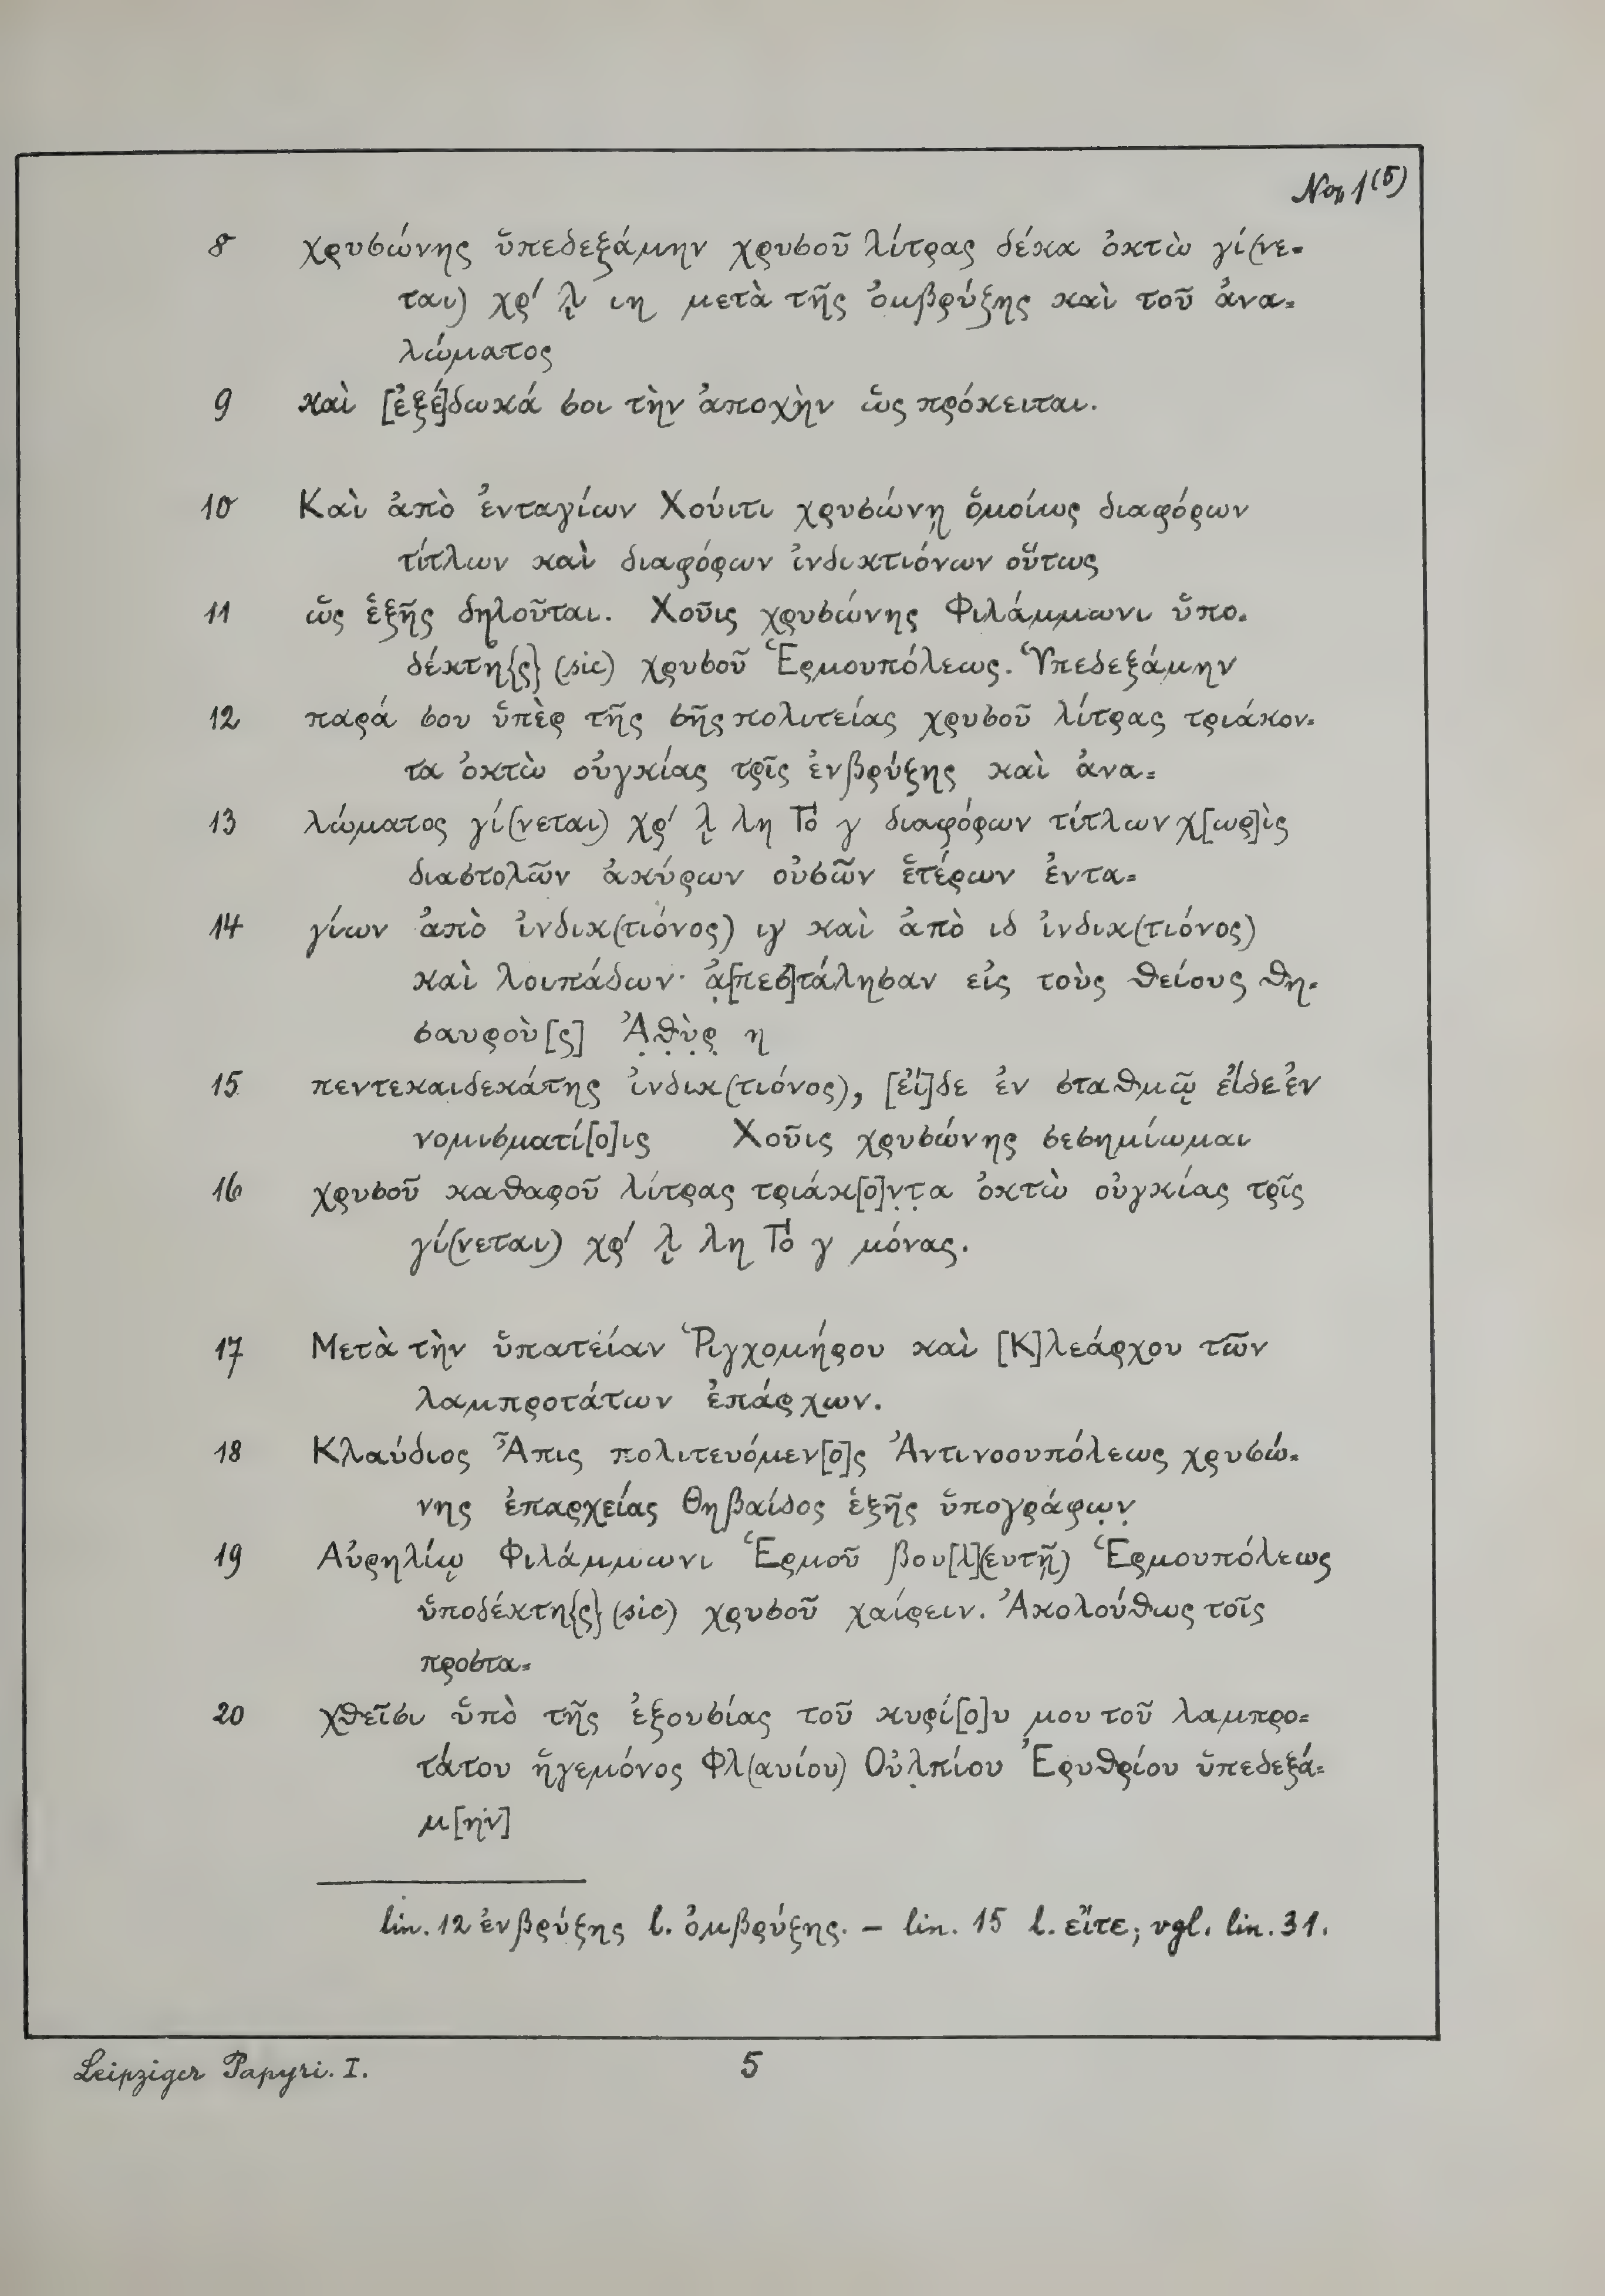 No, 1(5)
8 χρυσώνης ὑπεδεξάμην χρυσοῦ λίτρας δέκα ὀκτὼ γί(νε=
ται) χρ′ λ̣ ιη μετὰ τῆς ὀμβρύξης καὶ τοῦ ἀνα=
λώματος
9 καὶ [ἐξέ]δωκά σοι τὴν ἀποχὴν ὡς πρόκειται.
10 Καὶ ἀπὸ ἐνταγίων Χούιτι χρυσώνῃ ὁμοίως διαφόρων
τίτλων καὶ διαφόρων ἰνδικτιόνων οὕτως
11 ὡς ἑξῆς δηλοῦται. Χοῦις χρυσώνης Φιλάμμωνι ὑπο=
δέκτη{ς} (sic) χρυσοῦ Ἑρμουπόλεως. Ὑπεδεξάμην
12 παρά σου ὑπὲρ τῆς σῆς πολιτείας χρυσοῦ λίτρας τριάκον=
τα ὀκτὼ οὐγκίας τρῖς ἐνβρύξης καὶ ἀνα=
13 λώματος γί(νεται) χρ′ λ̣ λη Γό γ διαφόρων τίτλων χ[ωρ]ὶς
διαστολῶν ἀκύρων οὐσῶν ἑτέρων ἐντα=
14 γίων ἀπὸ ἰνδικ(τιόνος) ιγ καὶ ἀπὸ ιδ ἰνδικ(τιόνος)
καὶ λοιπάδων· ἀ̣[πεσ]τάλησαν εἰς τοὺς θείους θη=
σαυροὺ[ς] Ἀ̣θ̣ὺ̣ρ̣ η
15 πεντεκαιδεκάτης ἰνδικ(τιόνος), [εἴ]δε ἐν σταθμῷ εἴδε ἐν
νομισματί[ο]ις Χοῦις χρυσώνης σεσημίωμαι
16 χρυσοῦ καθαροῦ λίτρας τριάκ[ο]ν̣τ̣α ὀκτὼ οὐγκίας τρῖς
γί(νεται) χρ′ λ̣ λη Γό γ μόνας.
17 Μετὰ τὴν ὑπατείαν Ῥιγχομήρου καὶ [Κ]λεάρχου τῶν
λαμπροτάτων ἐπάρχων.
18 Κλαύδιος Ἆπις πολιτευόμεν[ο]ς Ἀντινοουπόλεως χρυσώ=
νης ἐπαρχείας Θηβαίδος ἑξῆς ὑπογράφω̣ν̣
19 Αὐρηλίῳ Φιλάμμωνι Ἑρμοῦ βου[λ](ευτῇ) Ἑρμουπόλεως
ὑποδέκτη{ς} (sic) χρυσοῦ χαίρειν. Ἀκολούθως τοῖς
προστα=
20 χθεῖσι ὑπὸ τῆς ἐξουσίας τοῦ κυρί[ο]υ μου τοῦ λαμπρο=
τάτου ἡγεμόνος Φλ(αυίου) Οὐλ̣πίου Ἐρυθρίου ὑπεδεξά=
μ[ην]
lin. 12 ἐνβρύξης l. ὀμβρύξης. – lin. 15 l. εἴτε; vgl. lin. 31.
Leipziger Papyri. I. 5